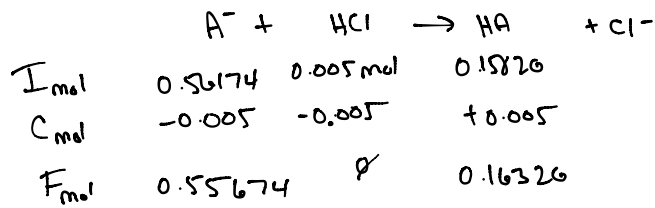 A⁻ + HCl → HA + Cl⁻
I mol 0.56174 0.005 mol 0.15820
C mol -0.005 -0.005 +0.005
F mol 0.55674 ∅ 0.16320